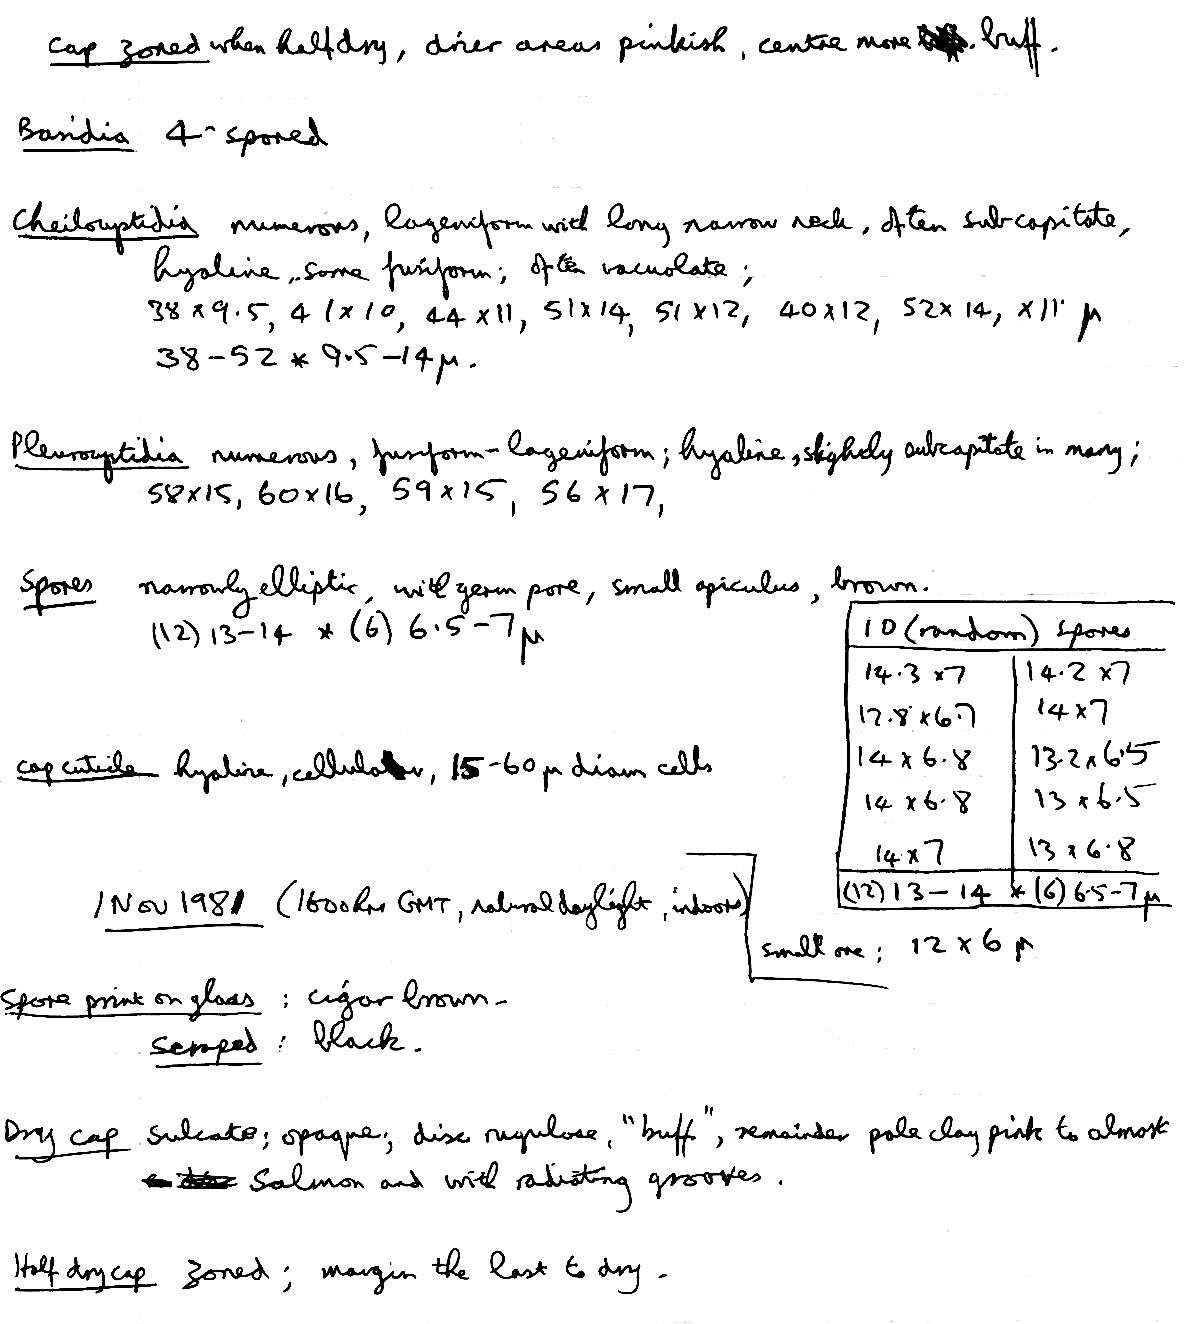 Cap zoned when half dry, drier areas pinkish, centre more buff.
Basidia 4-spored
Cheilocystidia numerous, lageniform with long narrow neck, often subcapitate,
hyaline, some fusiform; often vacuolate;
38 x 9.5, 41 x 10, 44 x 11, 51 x 14, 51 x 12, 40 x 12, 52 x 14, x 11 µ
38-52 x 9.5-14 µ.
Pleurocystidia numerous, fusiform-lageniform; hyaline, slightly subcapitate in many;
58 x 15, 60 x 16, 59 x 15, 56 x 17,
Spores narrowly elliptic, with germ pore, small apiculus, brown.
(12) 13-14 x (6) 6.5-7 µ
10 (random) spores
14.3 x 7 14.2 x 7
12.8 x 6.7 14 x 7
14 x 6.8 13.2 x 6.5
14 x 6.8 13 x 6.5
14 x 7 13 x 6.8
(12) 13-14 x (6) 6.5-7 µ
small one; 12 x 6 µ
Cap cuticle hyaline, cellular, 15-60 µ diam cells
1 Nov 1981 (1600hrs GMT, natural daylight, indoors)
Spore print on glass: cigar brown-
Scraped: black.
Dry cap sulcate; opaque; disc rugulose, "buff", remainder pale clay pink to almost
Salmon and with radiating grooves.
Half dry cap zoned; margin the last to dry.